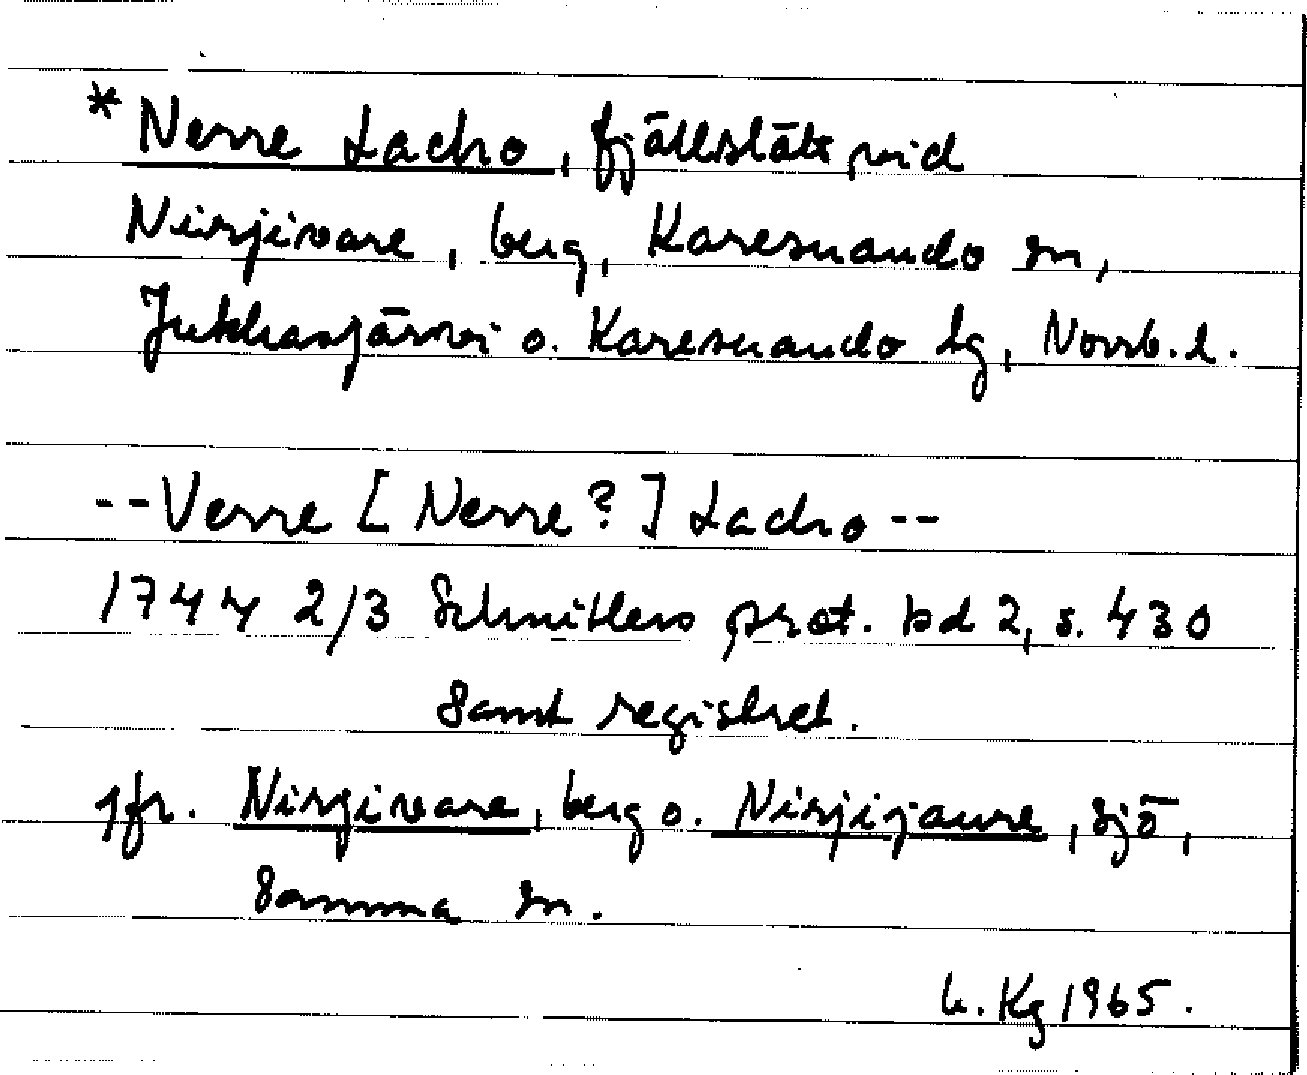 *Nerre Lacho, fjällslätt vid
Nirjivare, berg, Karesuando sn,
Jukkasjärvi o. Karesuando lg, Norrb. l.
--Verre [Nerre?] Lacho--
1744 2/3 Schnitlers prot. bd 2, s. 430
samt registret.
jfr. Nirjivare, berg o. Nirjijaure, sjö,
samma sn.
Kg 1965.